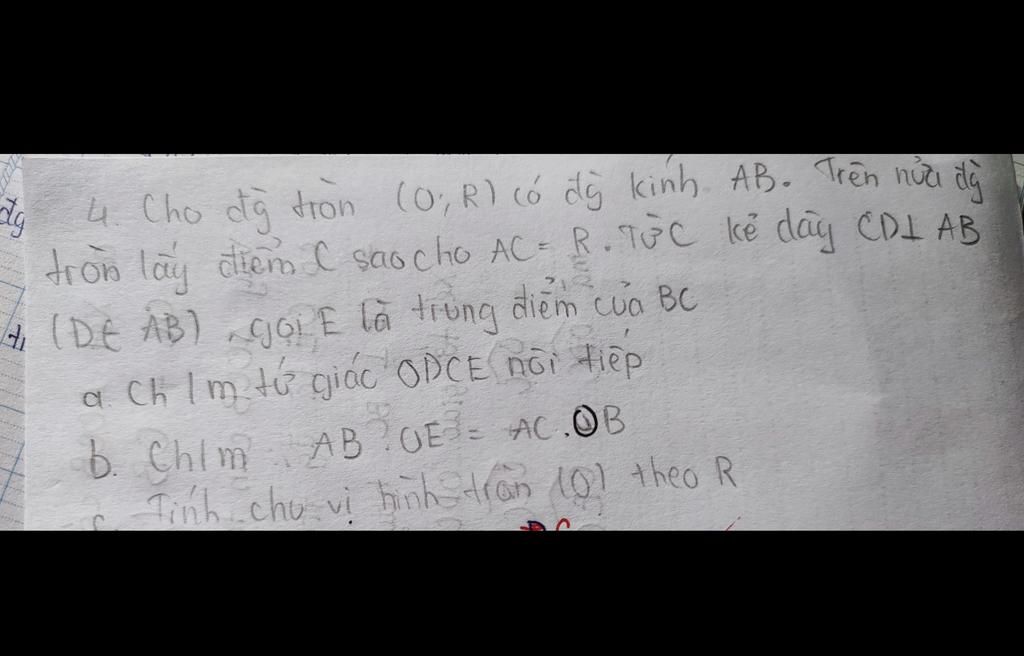 4. Cho đg̀ tròn (O; R) có đg̀ kính AB. Trên nửa đg̀
tròn lấy điểm C sao cho AC = R. Từ C kẻ dây CD⊥ AB
(D∈ AB), gọi E là trung điểm của BC
a. Ch/m tứ giác ODCE nội tiếp
b. Ch/m AB . OE = AC . OB
c. Tính chu vi hình tròn (O) theo R